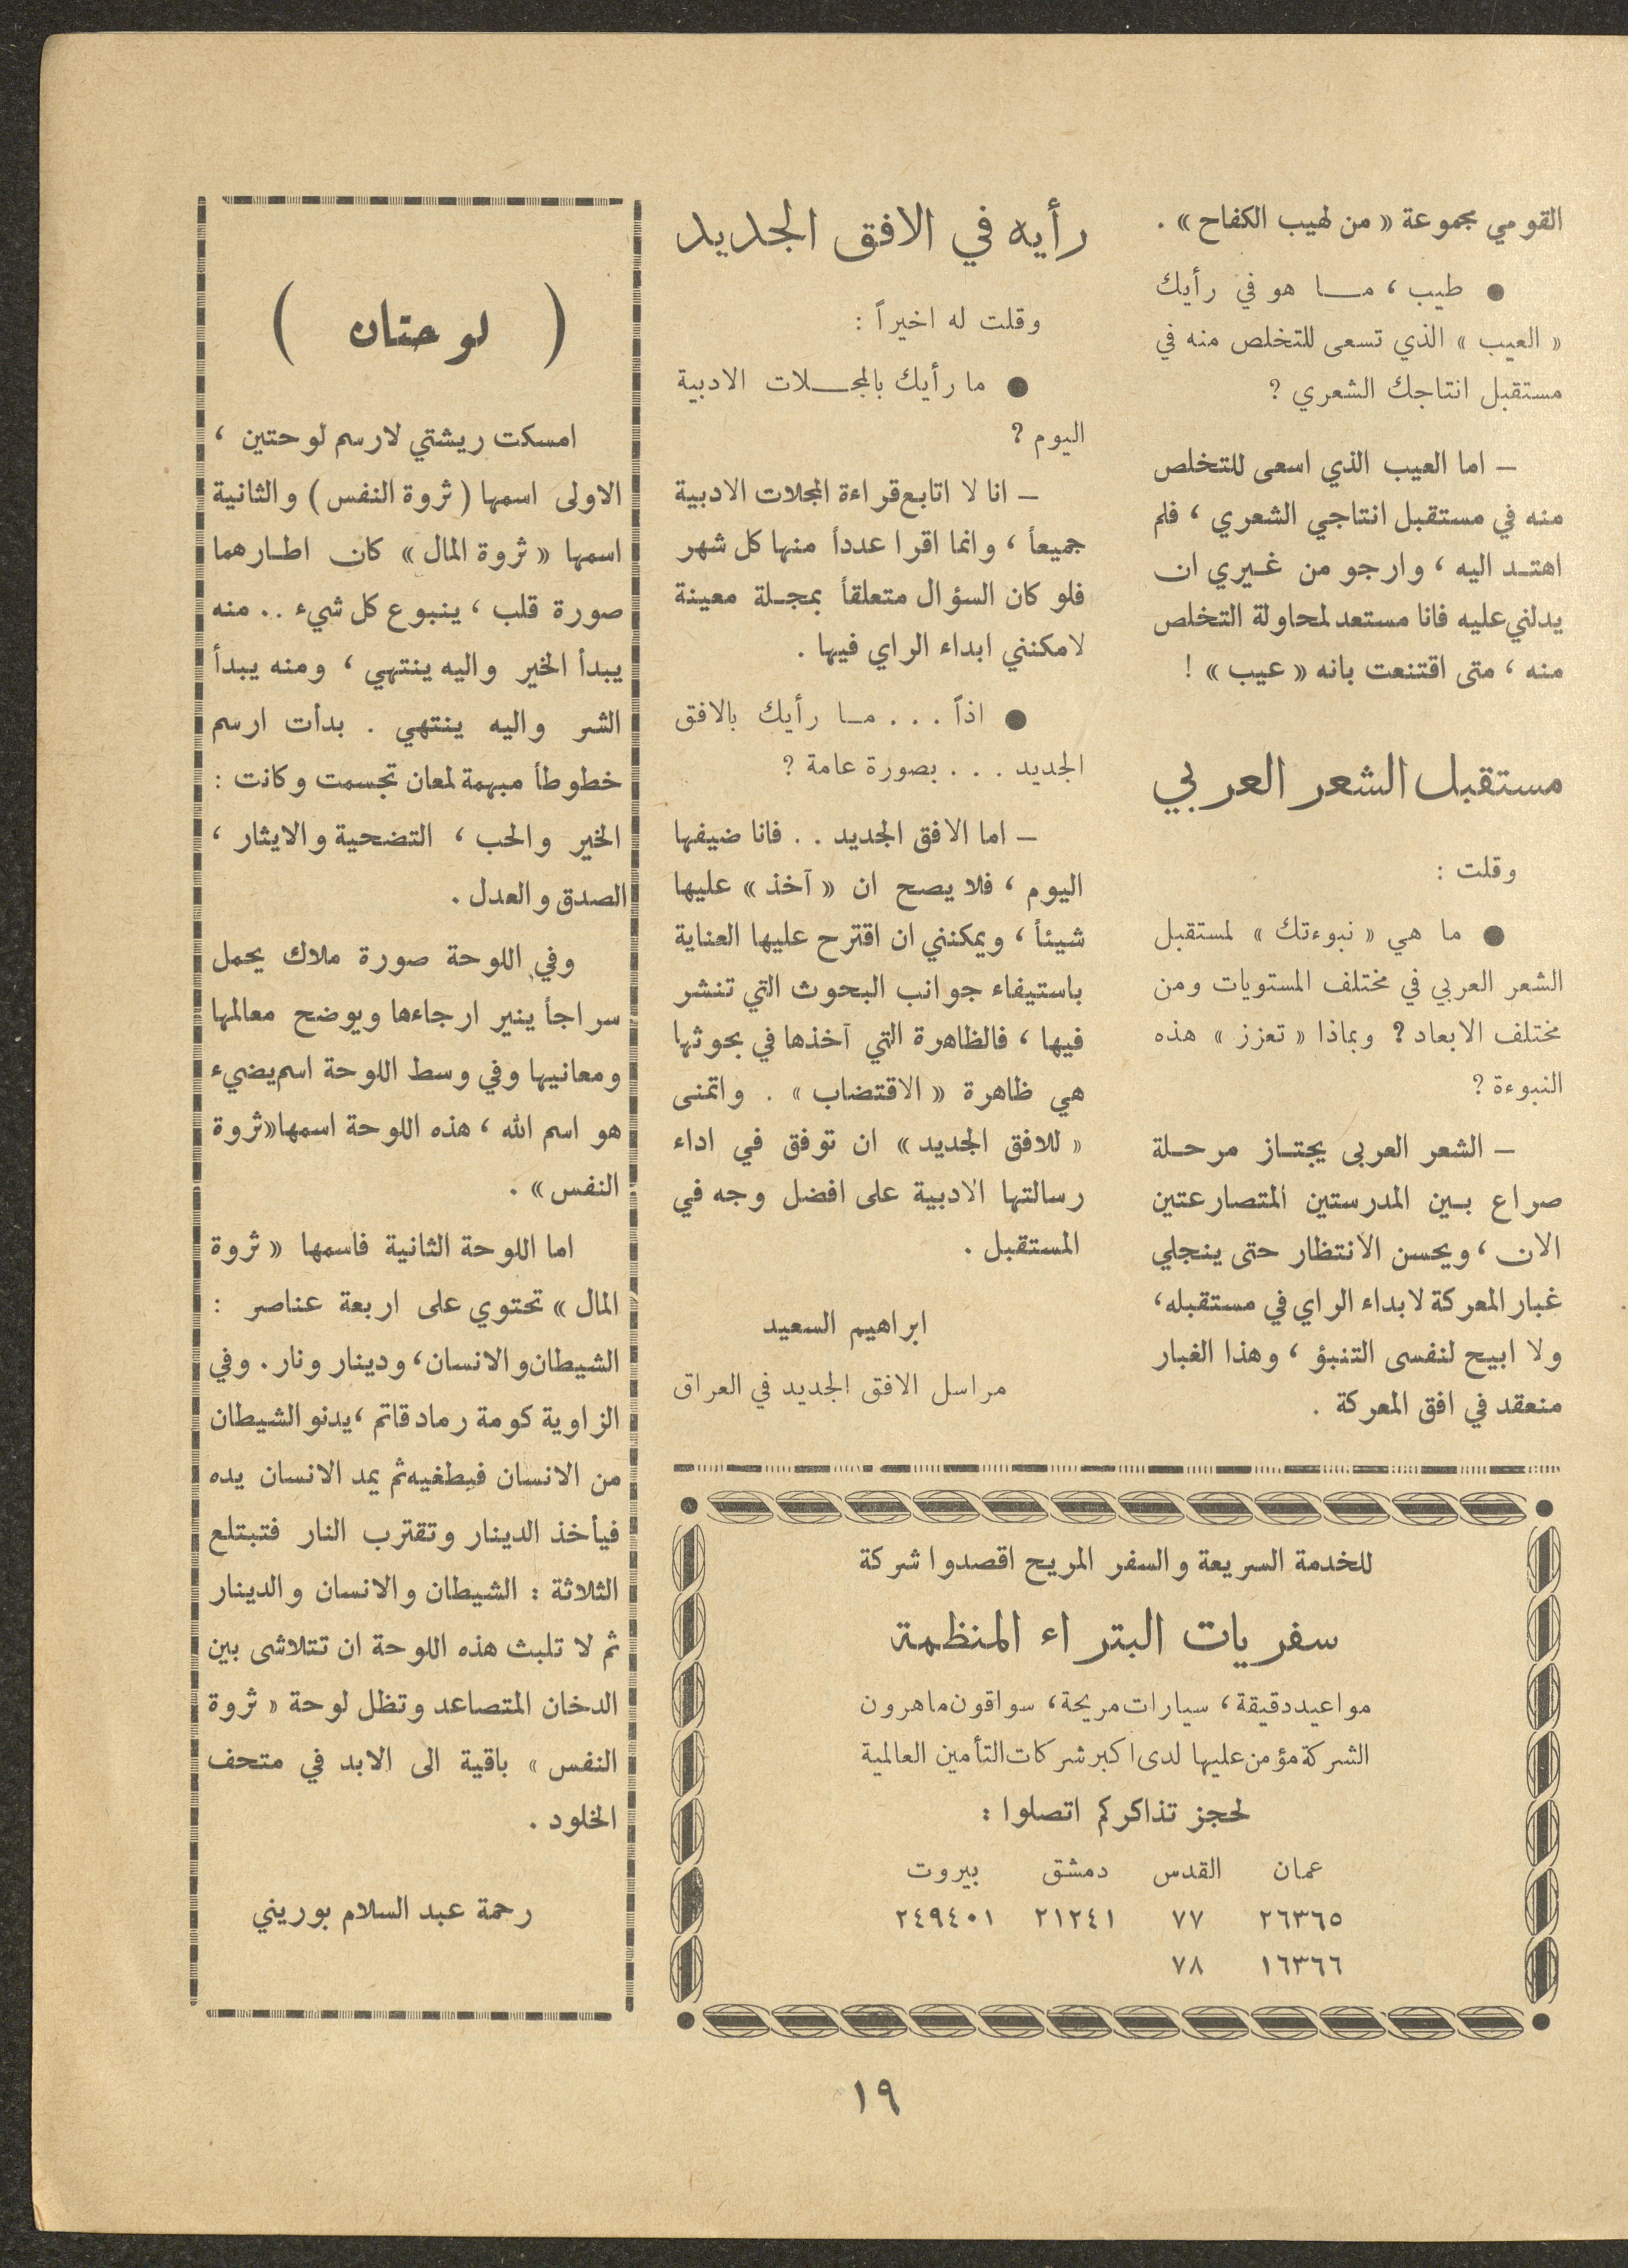 القومي مجموعة « من لهيب الكفاح » .
● طيب ، مـــا هو في رأيك
« العيب » الذي تسعى للتخلص منه في
مستقبل انتاجك الشعري ؟
– اما العيب الذي اسعى للتخلص
منه في مستقبل انتاجي الشعري ، فلم
اهتــد اليه ، وارجو من غــيري ان
يدلني عليه فانا مستعد لمحاولة التخلص
منه ، متى اقتنعت بانه « عيب » !
مستقبل الشعر العربي
وقلت :
● ما هي « نبوءتك » لمستقبل
الشعر العربي في مختلف المستويات ومن
مختلف الابعاد ؟ وبماذا « تعزز » هذه
النبوءة ؟
– الشعر العربى يجتــاز مرحــلة
صراع بــين المدرستين المتصارعتين
الان ، ويحسن الانتظار حتى ينجلي
غبار المعركة لابداء الراي في مستقبله ،
ولا ابيح لنفسى التنبؤ ، وهذا الغبار
منعقد في افق المعركة .
رأيه في الافق الجديد
وقلت له اخيراً :
● ما رأيك بالمجـــلات الادبية
اليوم ؟
– انا لا اتابع قراءة المجلات الادبية
جميعاً ، وانما اقرا عدداً منها كل شهر
فلو كان السؤال متعلقاً بمجــلة معينة
لامكنني ابداء الراي فيها .
● اذاً . . . مــا رأيك بالافق
الجديد . . . بصورة عامة ؟
– اما الافق الجديد . . فانا ضيفها
اليوم ، فلا يصح ان « آخذ » عليها
شيئاً ، ويمكنني ان اقترح عليها العناية
باستيفاء جوانب البحوث التي تنشر
فيها ، فالظاهرة التي آخذها في بحوثها
هي ظاهرة « الاقتضاب » . واتمنى
« للافق الجديد » ان توفق في اداء
رسالتها الادبية على افضل وجه في
المستقبل .
ابراهيم السعيد
مراسل الافق الجديد في العراق
للخدمة السريعة والسفر المريح اقصدوا شركة
سفريات البتراء المنظمة
مواعيد دقيقة ، سيارات مريحة ، سواقون ماهرون
الشركة مؤمن عليها لدى اكبر شركات التأمين العالمية
لحجز تذاكركم اتصلوا :
عمان القدس دمشق بيروت
٢٦٣٦٥ ٧٧ ٢١٢٤١ ٢٤٩٤٠١
١٦٣٦٦ ٧٨
( لوحتان )
امسكت ريشتي لارسم لوحتين ،
الاولى اسمها ( ثروة النفس ) والثانية
اسمها « ثروة المال » كان اطــارهما
صورة قلب ، ينبوع كل شيء . . منه
يبدأ الخير واليه ينتهي ، ومنه يبدأ
الشر واليه ينتهي . بدأت ارسم
خطوطاً مبهمة لمعان تجسمت وكانت :
الخير والحب ، التضحية والايثار ،
الصدق والعدل .
وفي اللوحة صورة ملاك يحمل
سراجاً ينير ارجاءها ويوضح معالمها
ومعانيها وفي وسط اللوحة اسم يضيء
هو اسم الله ، هذه اللوحة اسمها « ثروة
النفس » .
اما اللوحة الثانية فاسمها « ثروة
المال » تحتوي على اربعة عناصر :
الشيطان والانسان ، ودينار ونار . وفي
الزاوية كومة رماد قاتم ، يدنو الشيطان
من الانسان فيطغيه ثم يمد الانسان يده
فيأخذ الدينار وتقترب النار فتبتلع
الثلاثة : الشيطان والانسان والدينار
ثم لا تلبث هذه اللوحة ان تتلاشى بين
الدخان المتصاعد وتظل لوحة « ثروة
النفس » باقية الى الابد في متحف
الخلود .
رحمة عبد السلام بوريني
١٩